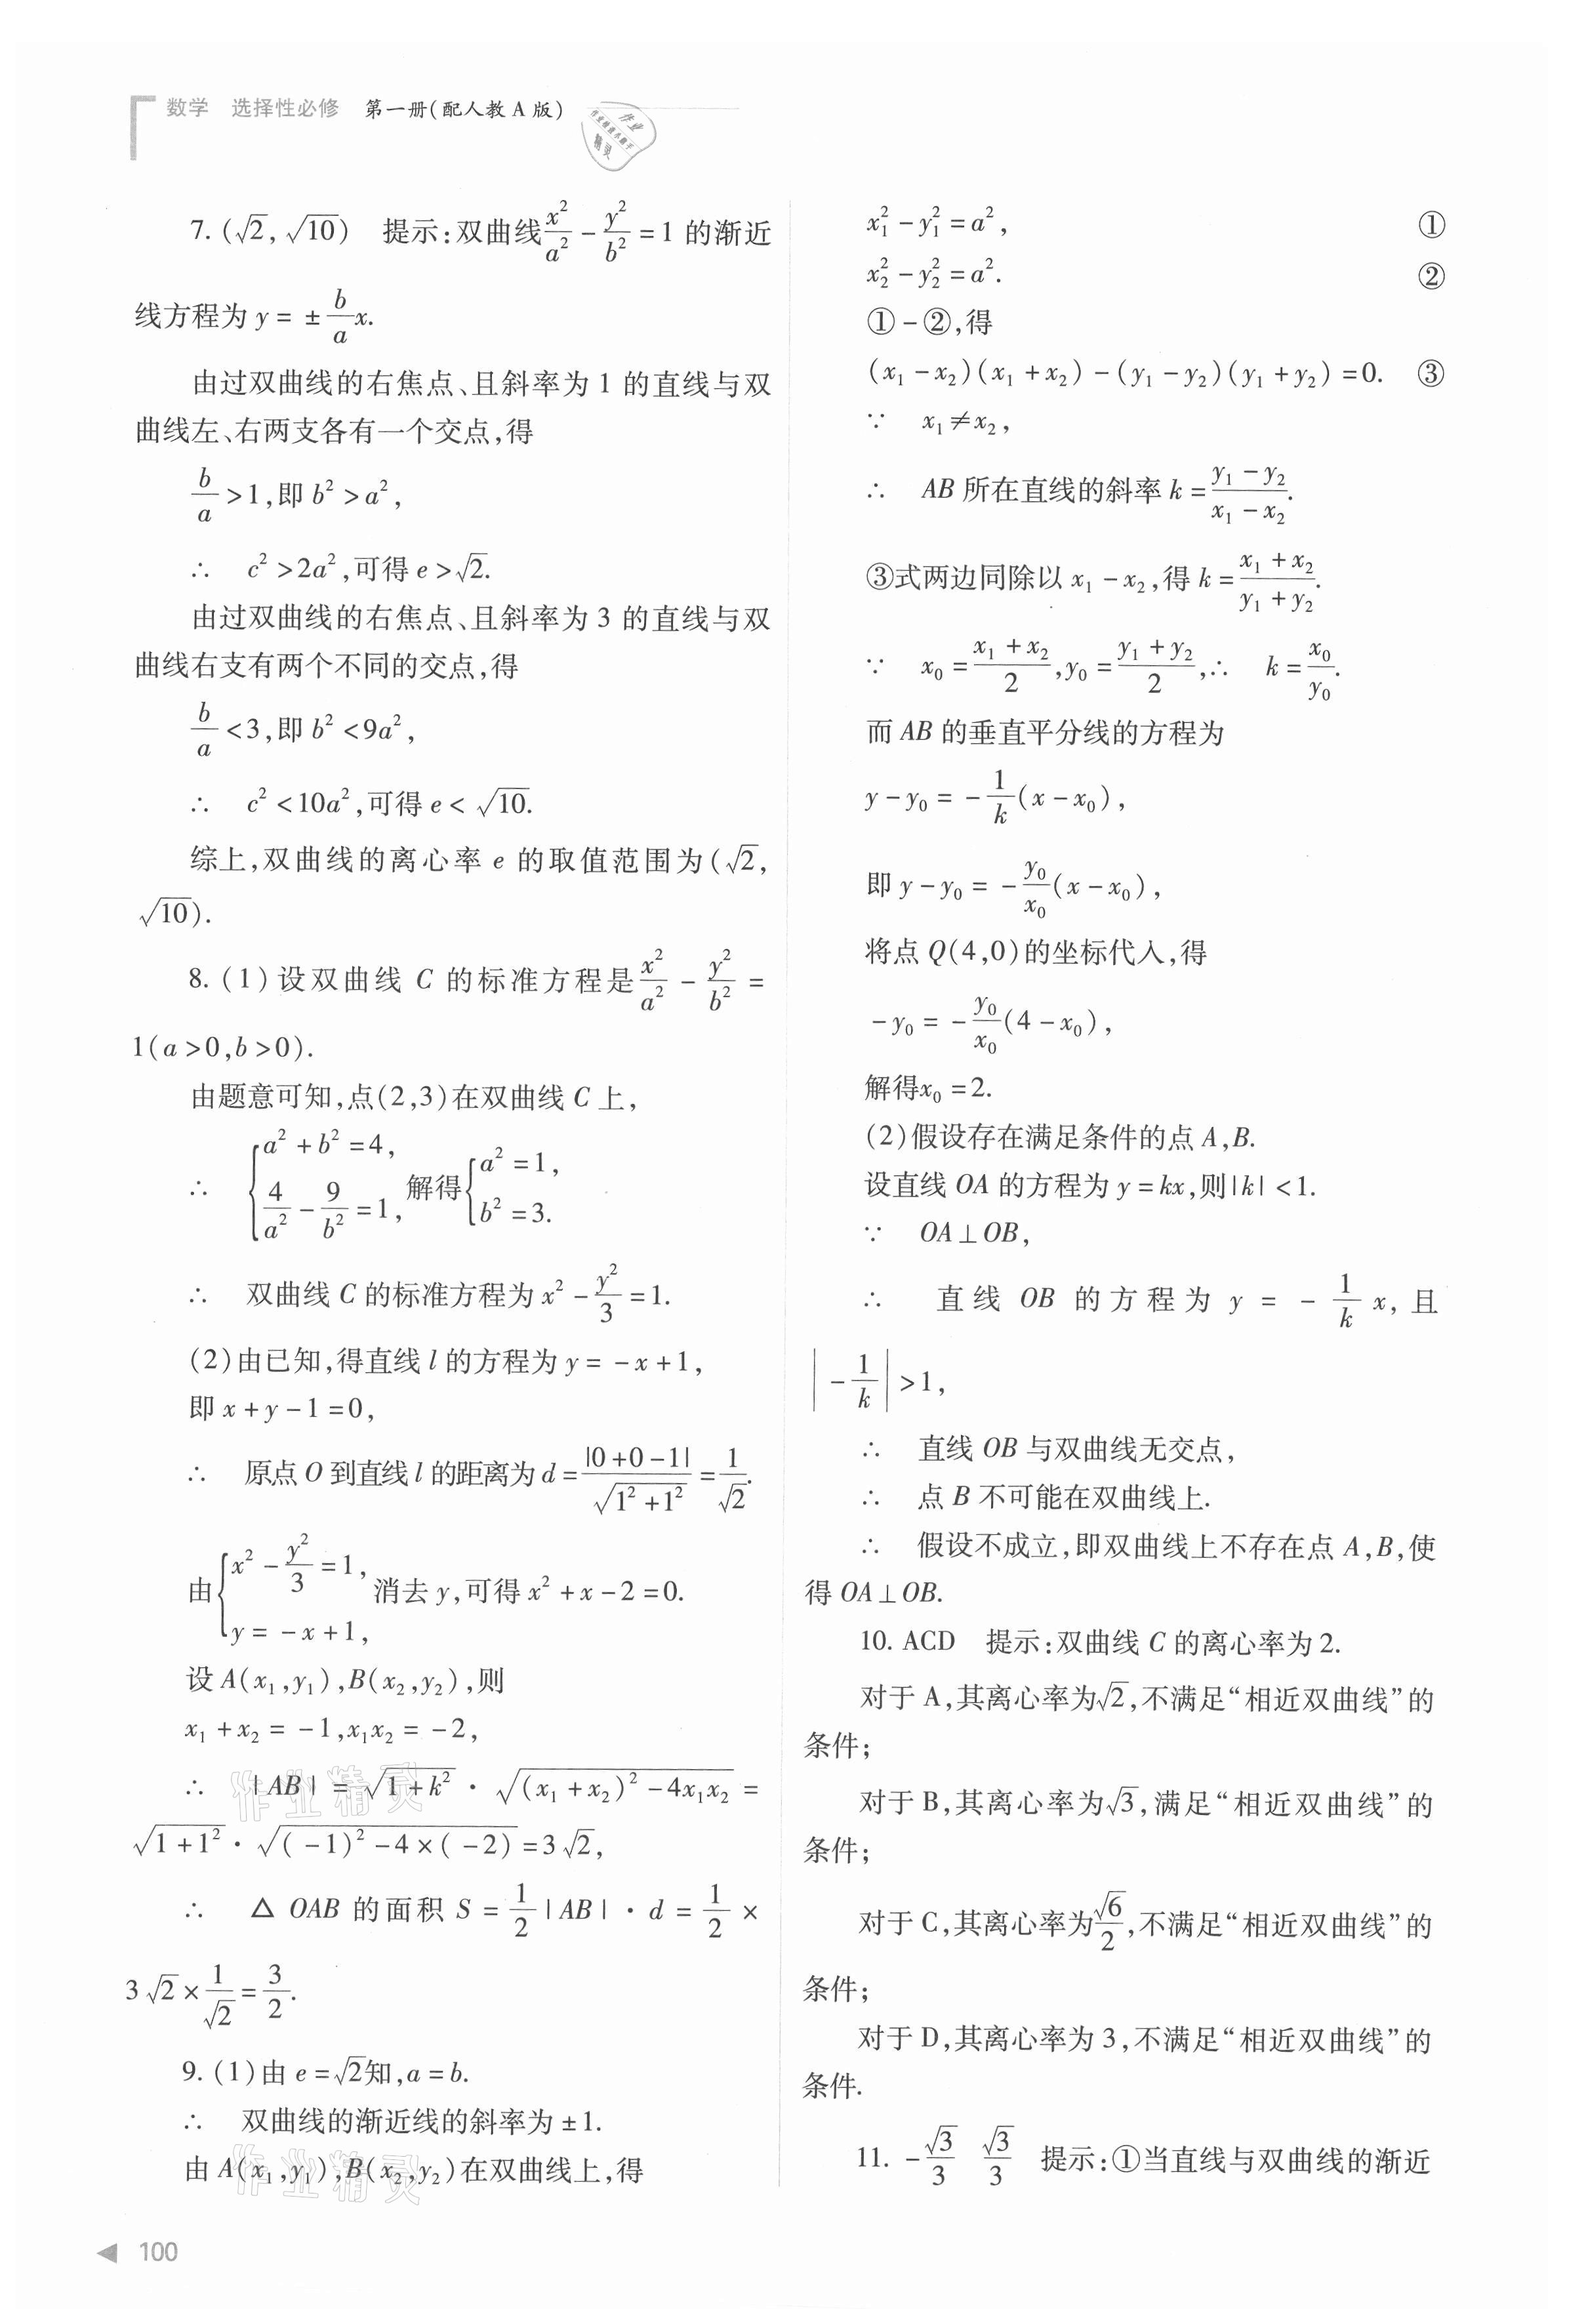 数学 选择性必修 第一册(配人教 A 版)
作业
作业精灵不翻手
精灵
7. (√2, √10) 提示:双曲线x²/a² - y²/b² = 1 的渐近
线方程为 y = ± b/a x.
由过双曲线的右焦点、且斜率为 1 的直线与双
曲线左、右两支各有一个交点,得
b/a > 1,即 b² > a²,
∴ c² > 2a²,可得 e > √2.
由过双曲线的右焦点、且斜率为 3 的直线与双
曲线右支有两个不同的交点,得
b/a < 3,即 b² < 9a²,
∴ c² < 10a²,可得 e < √10.
综上,双曲线的离心率 e 的取值范围为(√2,
√10).
8. (1)设双曲线 C 的标准方程是 x²/a² - y²/b² =
1(a > 0,b > 0).
由题意可知,点(2,3)在双曲线 C 上,
∴ {a² + b² = 4, 4/a² - 9/b² = 1, 解得{a² = 1, b² = 3.
∴ 双曲线 C 的标准方程为 x² - y²/3 = 1.
(2)由已知,得直线 l 的方程为 y = -x + 1,
即 x + y - 1 = 0,
∴ 原点 O 到直线 l 的距离为 d = |0 + 0 - 1|/√(1² + 1²) = 1/√2.
由{x² - y²/3 = 1, y = -x + 1, 消去 y,可得 x² + x - 2 = 0.
设 A(x₁,y₁),B(x₂,y₂),则
x₁ + x₂ = -1,x₁x₂ = -2,
∴ |AB| = √(1 + k²) · √((x₁ + x₂)² - 4x₁x₂) =
√(1 + 1²) · √((-1)² - 4 × (-2)) = 3√2,
∴ △OAB 的面积 S = 1/2 |AB| · d = 1/2 ×
3√2 × 1/√2 = 3/2.
9. (1)由 e = √2知,a = b.
∴ 双曲线的渐近线的斜率为 ±1.
由 A(x₁,y₁),B(x₂,y₂)在双曲线上,得
x₁² - y₁² = a², ①
x₂² - y₂² = a². ②
① - ②,得
(x₁ - x₂)(x₁ + x₂) - (y₁ - y₂)(y₁ + y₂) = 0. ③
∵ x₁ ≠ x₂,
∴ AB 所在直线的斜率 k = (y₁ - y₂)/(x₁ - x₂).
③式两边同除以 x₁ - x₂,得 k = (x₁ + x₂)/(y₁ + y₂).
∵ x₀ = (x₁ + x₂)/2,y₀ = (y₁ + y₂)/2,∴ k = x₀/y₀.
而 AB 的垂直平分线的方程为
y - y₀ = -1/k(x - x₀),
即 y - y₀ = -y₀/x₀(x - x₀),
将点 Q(4,0)的坐标代入,得
-y₀ = -y₀/x₀(4 - x₀),
解得x₀ = 2.
(2)假设存在满足条件的点 A,B.
设直线 OA 的方程为 y = kx,则|k| < 1.
∵ OA⊥OB,
∴ 直线 OB 的方程为 y = -1/k x,且
|-1/k| > 1,
∴ 直线 OB 与双曲线无交点,
∴ 点 B 不可能在双曲线上.
∴ 假设不成立,即双曲线上不存在点 A,B,使
得 OA⊥OB.
10. ACD 提示:双曲线 C 的离心率为 2.
对于 A,其离心率为√2,不满足“相近双曲线”的
条件;
对于 B,其离心率为√3,满足“相近双曲线”的
条件;
对于 C,其离心率为√6/2,不满足“相近双曲线”的
条件;
对于 D,其离心率为 3,不满足“相近双曲线”的
条件.
11. -√3/3 √3/3 提示:①当直线与双曲线的渐近
作业精灵
作业精灵
100